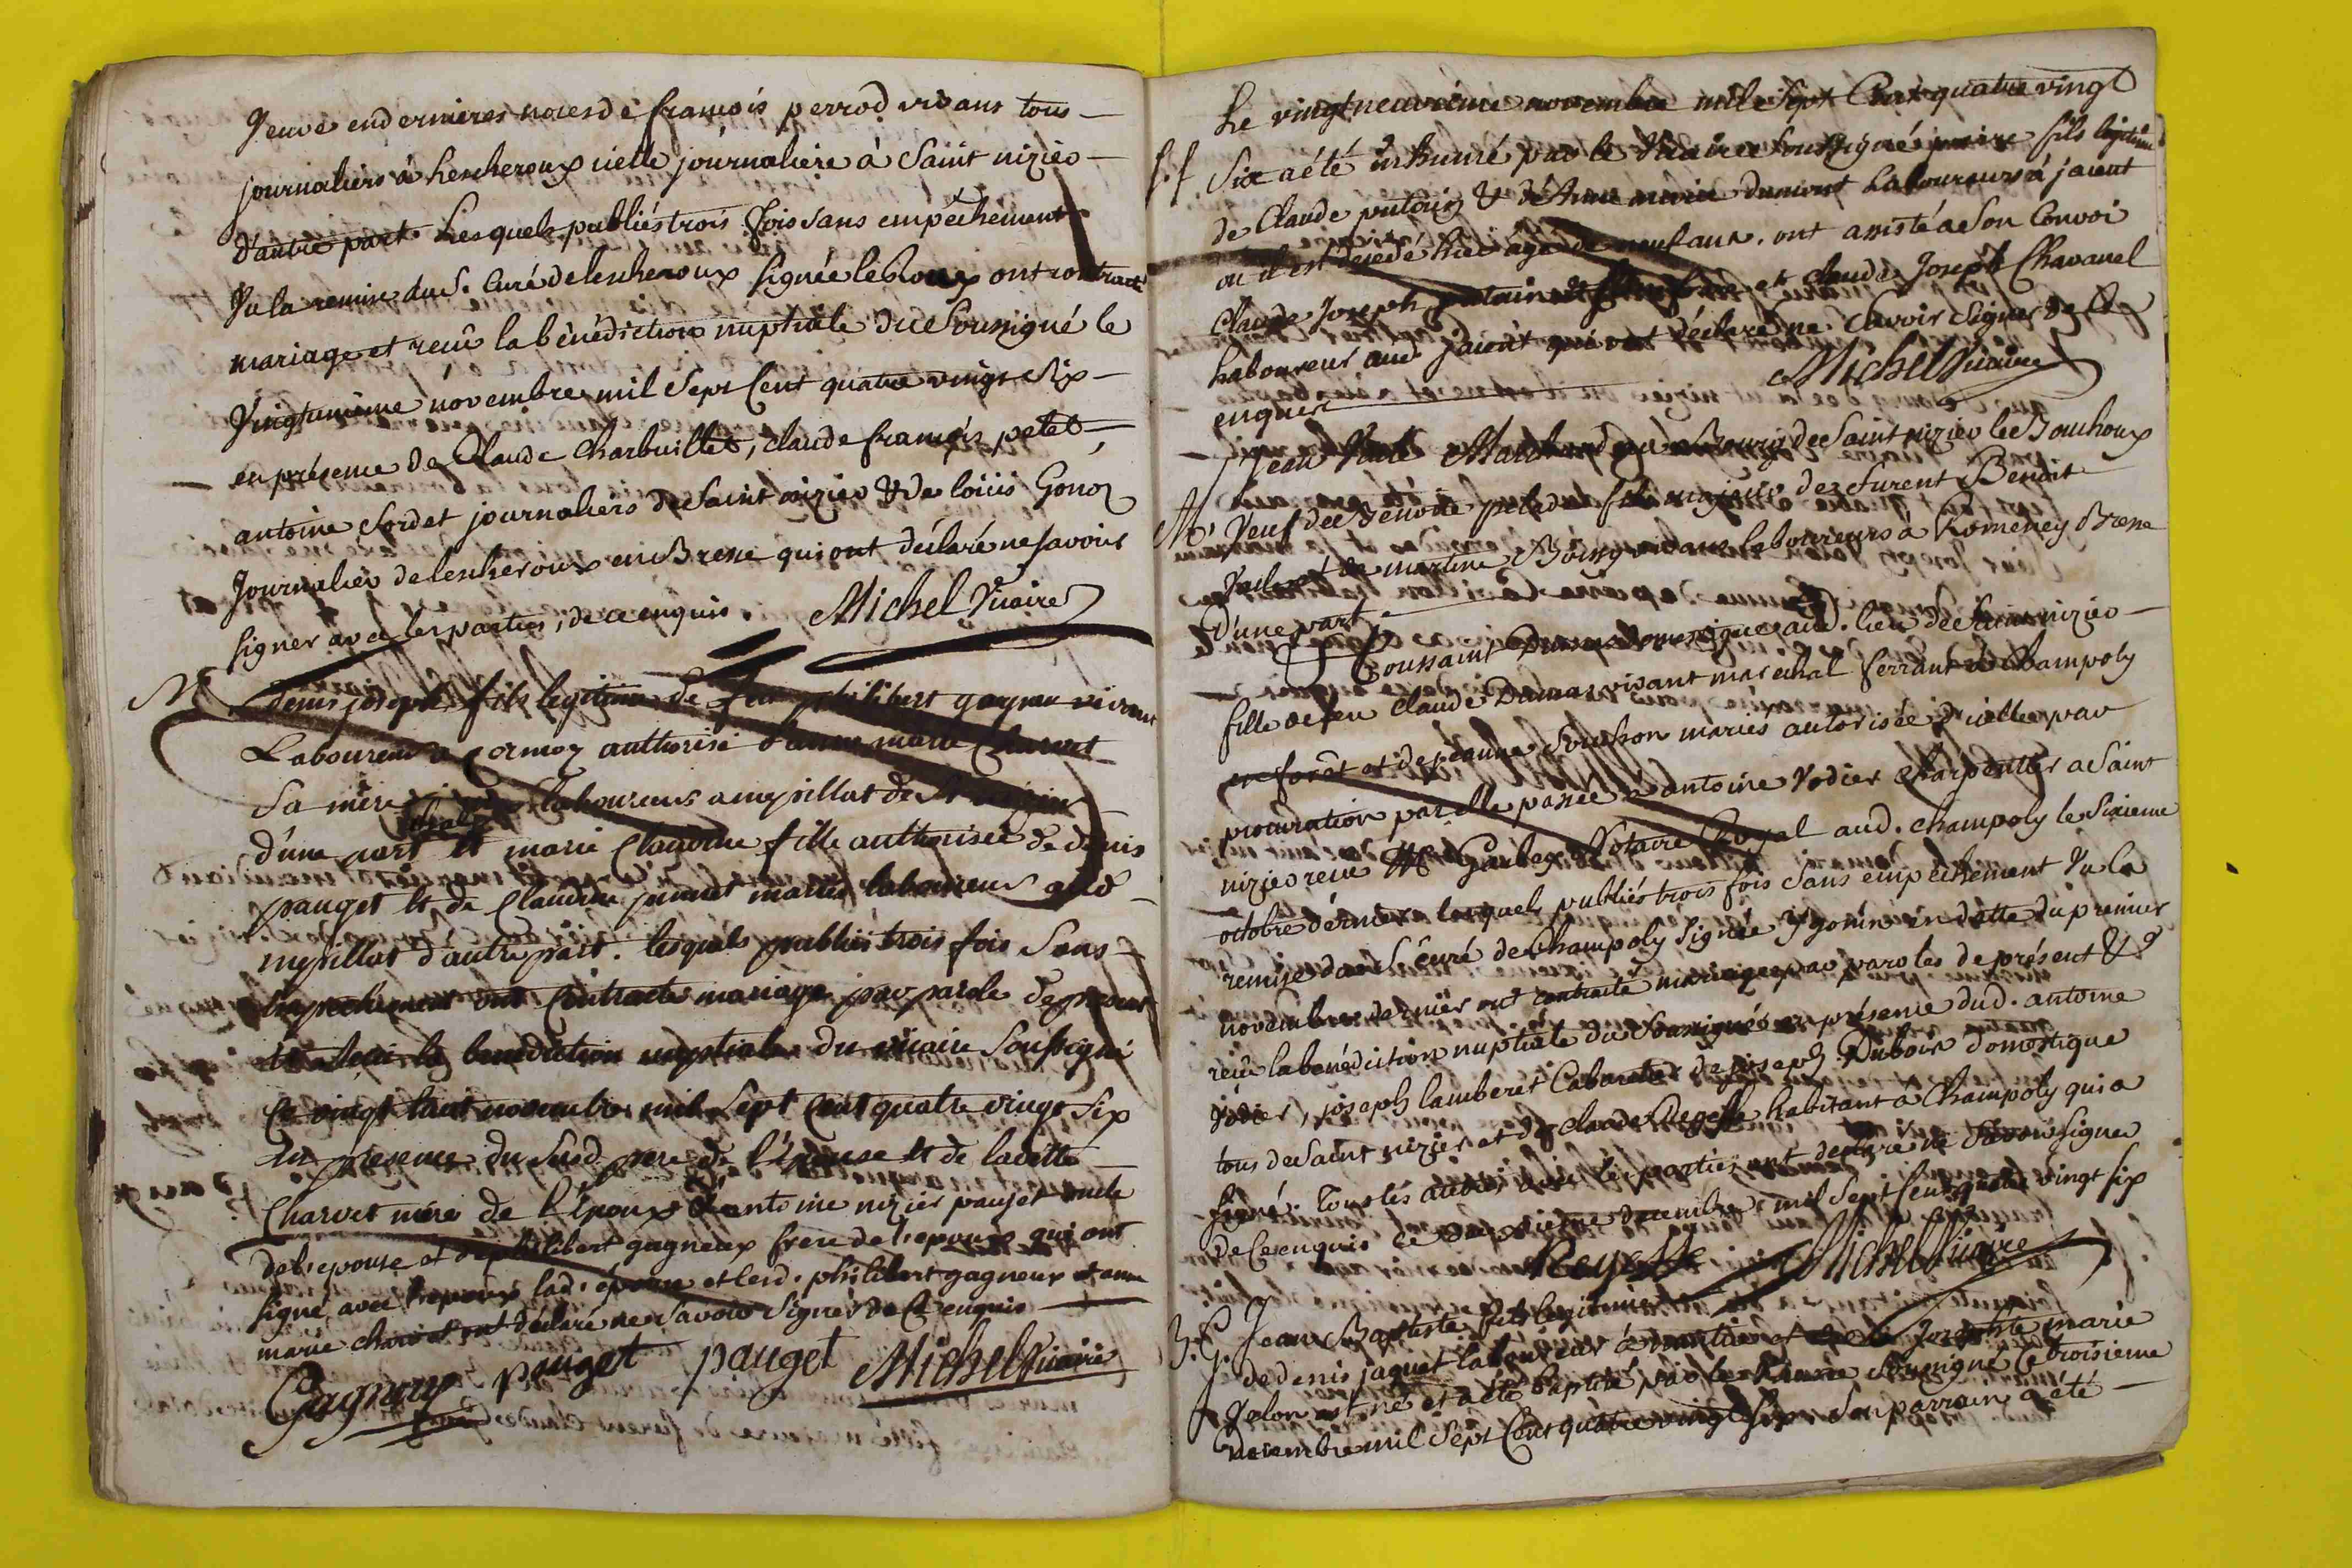 Veuve en dernieres noces de françois perrod vivans tous
journaliers à lescheroux icelle journaliere à Saint nizier
d'autre part. Lesquels publiés trois fois sans empêchement
Vu la remise du S. Curé de lescheroux signée leRoux ont contracté
mariage et reçu la bénédiction nuptiale du Soussigné le
Vingtunième novembre mil Sept Cent quatre vingt Six
en présence de Claude Charbuillet, claude françois petet
antoine Sordet journaliers de Saint nizier & de loüis Gonod
Journalier de lescheroux en Bresse qui ont déclaré ne savoir
signer avec les parties, de ce enquis. Michel Vicaire
M
Denis joseph fils legitime de feu philibert gagneu vivant
Laboureur à Cormoz authorisé d'anne marie Charvet
Sa mère laboureur a mepillat de St nizier
d'une part et marie Claudine fille authorisée de denis
pauget et de Claudine junnet mariés laboureurs aud
mepillat d'autre part. lesquels publiés trois fois Sans
Empechement ont Contracté mariage par parole de present
et la benediction nuptiale du vicaire Soussigné
Ce vingt huit novembre mil Sept Cent quatre vingt Six
En presence du Susd pere de l'épouse et de ladette
Charvet mère de l'époux d'antoine nizier paujet oncle
de l'epouse et de philibert gagneux frere de l'epoux qui ont
signé avec l'epoux lad. épouse et led. philibert gagneux et anne
marie charvet ont déclaré ne Savoir Signer de Ce enquis
Gagneux pauget pauget Michel Vicaire
Le vingtneuvième novembre mil Sept Cent quatre vingt
S.f Six a été inhumé par le Vicaire Soussigné pierre fils légitime
de Claude putoin & de Anne marie dumont Laboureurs à jaient
où il est décédé hier âgé de neuf ans. ont assisté a Son Convoi
Claude Joseph putain Son frere et claude Joseph Chavanel
Laboureur aud. jaient qui ont déclaré ne Savoir Signer de Ce
enquis Michel Vicaire
Jean Vaile Marchand au Bourg de Saint nizier le Bouchoux
M. Veuf de Benoite pelade fils majeur de furent Benoit
Vaile et de martine Boissy vivans laboureurs à Romeney Bresse
D'une part
& Toussaint Dumas domestique aud. lieu de Saint nizier
fille de feu Claude Dumas vivant maréchal ferrant à Champoly
en forêt et de jeanne Souchon mariés autorisée d'icelle par
procuration par elle passée à antoine Vodier Charpentier a Saint
nizier reçue Me Notaire Royal aud. champoly le Sixieme
octobre dernier lesquels publiés trois fois Sans empêchement Vu la
remise du S. curé de Champoly Signée Ygonin en datte du premier
novembre dernier ont contracté mariage par paroles de présent &
reçu la bénédiction nuptiale du Soussigné en présence dud. antoine
Vodier, joseph lamberet Cabaretier de joseph Dubois domestique
tous de Saint nizier et de claude habitant à Champoly qui a
signé. Tous les autres avec les parties ont déclaré ne Savoir Signer
de Ce enquis le décembre mil Sept Cent quatre vingt six
Michel Vicaire
B.G. Jean Baptiste fils legitime
de denis jaquet laboureur et de Josephte marie
Velon est né et a été baptisé par le Vicaire Soussigné le troisieme
decembre mil Sept Cent quatre vingt Six. Son parrain a été